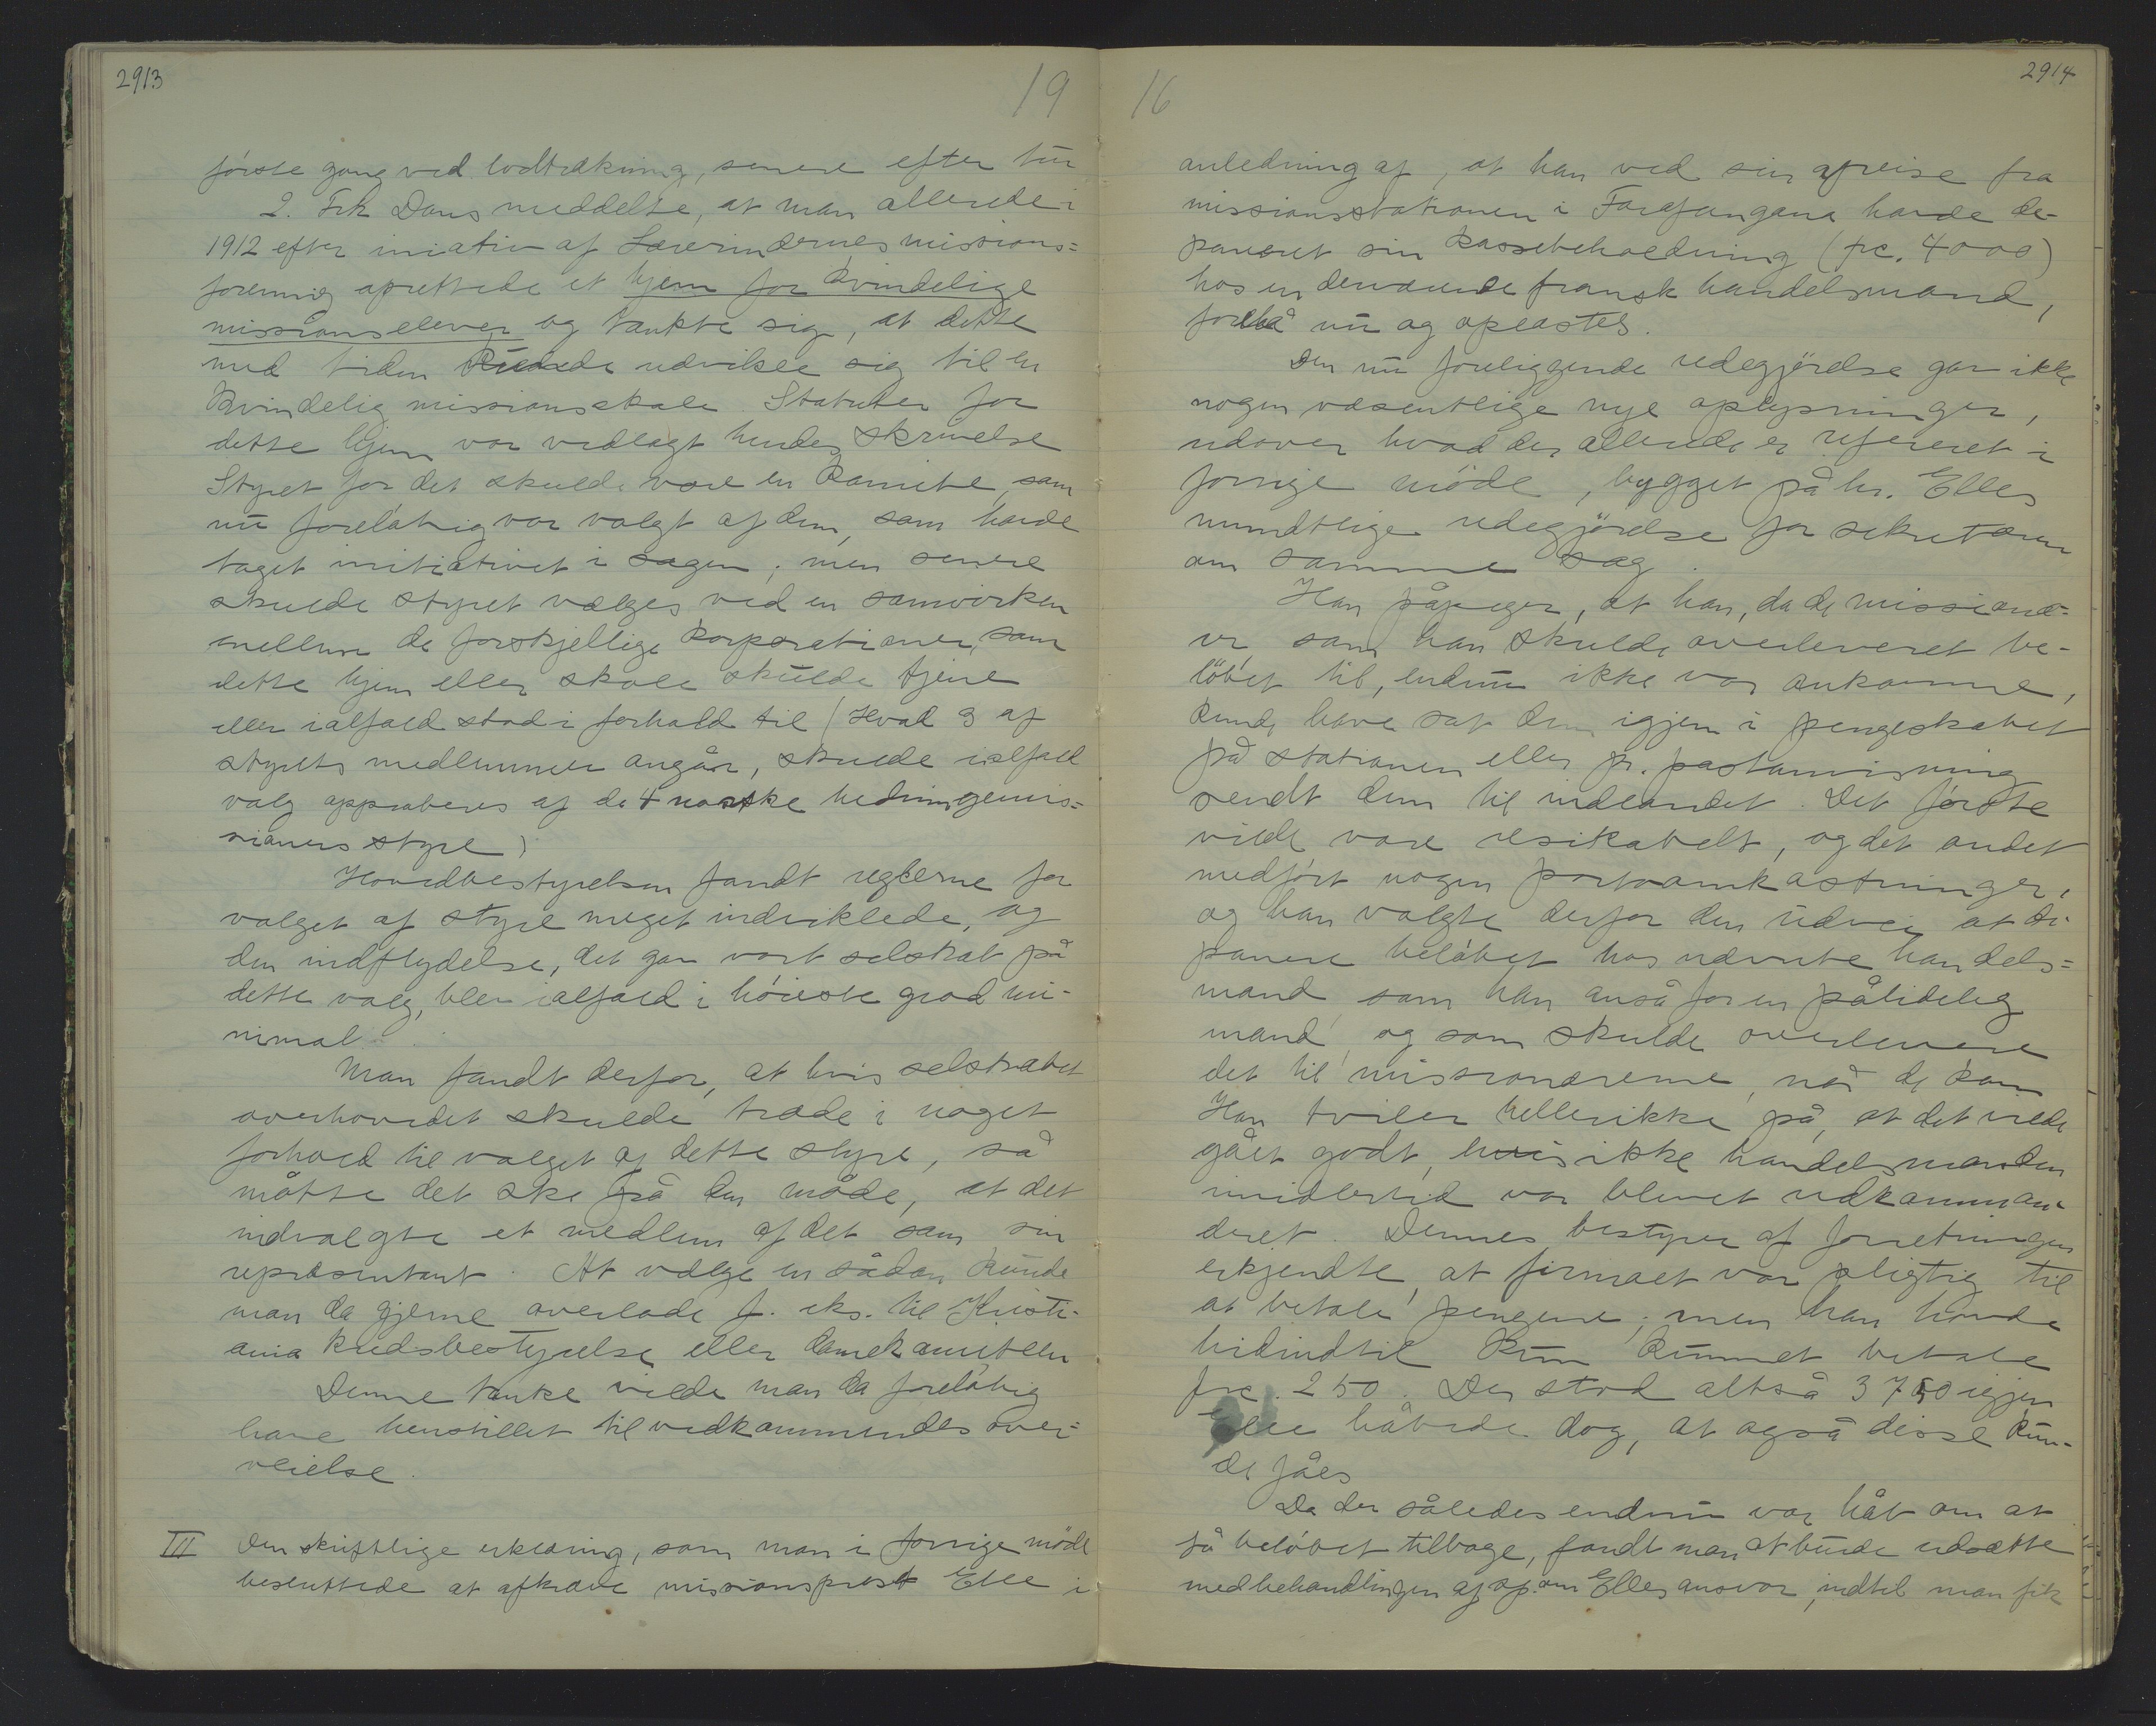 2913
19
første gang ved lodtrækning, senere efter tur
2. Frk Dons meddelte, at man allerede i
1912 efter iniativ af Lærerindernes missions=
forening oprettede et hjem for kvindelige
missionselever og tænkte sig, at dette
med tiden kunde udvikle sig til en
kvindelig missionsskole. Statuter for
dette hjem var vedlagt hendes skrivelse
Styret for det skulde være en komite, som
nu foreløbig var valgt af dem, som havde
taget initiativet i sagen; men senere
skulde styret vælges ved en samvirken
mellem de forskjellige korporationer, som
dette hjem eller skole skulde tjene
eller ialfald stod i forhold til (Hvad 3 af
styrets medlemmer angår, skulde ialfald
valg approberes af de 4 norske hedningemis=
sioners styre)
Hovedbestyrelsen fandt reglerne for
valget af styre meget indviklede, og
den indflydelse, det gav vort selskab på
dette valg, blev ialfald i høieste grad mi-
nimal.
Man fandt derfor, at hvis selskabet
overhovedet skulde træde i noget
forhold til valget af dette styre, så
måtte det ske på den måde, at det
indvalgte et medlem af det som sin
repræsentant. At vælge en sådan kunde
man da gjerne overlade f. eks. til Kristi-
ania kredsbestyrelse eller damekomiteen
Denne tanke vilde man da foreløbig
have henstillet til vedkommendes over-
veielse.
III Den skriftlige erklæring, som man i forrige møde
besluttede at afkræve missionsprest Elle i
16
2914
anledning af, at han ved sin afreise fra
missionsstationen i Farafangana havde de-
poneret sin kassebeholdning (frc. 4000)
hos en derværende fransk handelsmand,
forelå nu og oplæstes.
Den nu foreliggende redegjørelse gav ikke
nogen væsentlige nye oplysninger,
udover hvad der allerede er refereret i
forrige møde, bygget på hr. Elles
mundtlige redegjørelse for sekretæren
om samme sag.
Han påpeger, at han, da de missionæ-
rer, som han skulde overleveret be-
løbet til, endnu ikke var ankomne,
kunde have sat dem igjen i pengeskabet
på stationen eller pr. postanvisning
sendt dem til indlandet. Det første
vilde være resikabelt, og det andet
medført nogen portoomkostninger,
og han valgte derfor den udvei at de-
ponere beløbet hos nævnte handels=
mand, som han anså for en pålidelig
mand, og som skulde overlevere
det til missionærerne, når de kom
Han tviler hellerikke på, at det vilde
gået godt, hvis ikke handelsmanden
imidlertid var blevet udkomman-
deret. Dennes bestyrer af forretningen
erkjendte, at firmaet var pligtig til
at betale pengene; men han havde
hidindtil kun kunnet betale
frc. 250. Der stod altså 3750 igjen
Elle håbede dog, at også disse kun-
de fåes
Da der således endnu var håb om at
få beløbet tilbage, fandt man at burde udsætte
med behandlingen af sp. om Elles ansvar, indtil man fik